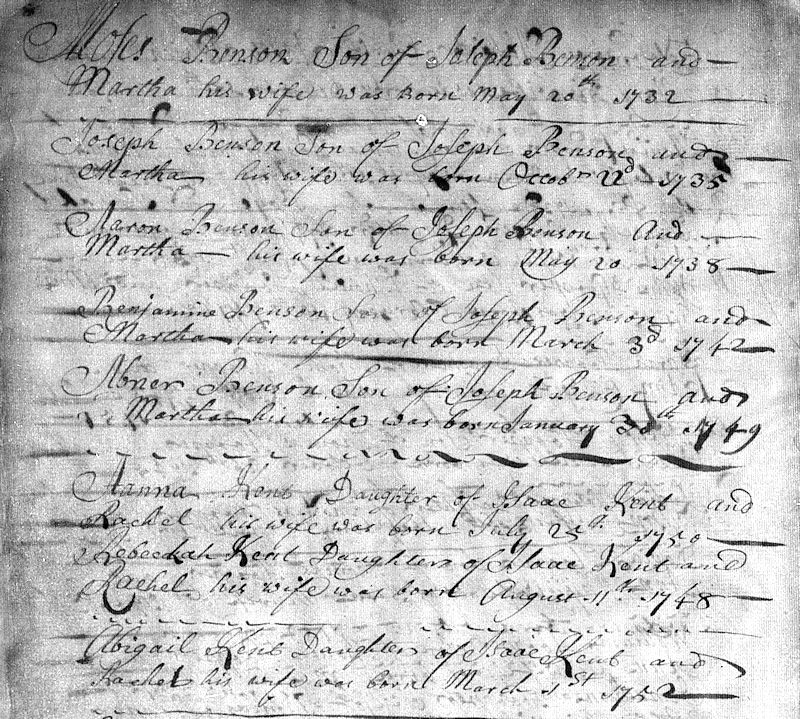 Moses Benson Son of Joseph Benson and
Martha his wife was Born May 20th 1732
Joseph Benson Son of Joseph Benson and
Martha his wife was born Octobr 22d 1735
Aaron Benson Son of Joseph Benson And
Martha his wife was born May 20 1738
Benjamine Benson Son of Joseph Benson and
Martha his wife was born March 3d 1742
Abner Benson Son of Joseph Benson and
Martha his wife was born January 30th 1749
Hanna Kent Daughter of Isaac Kent and
Rachel his wife was born July 25th 1750
Rebeckah Kent Daughter of Isaac Kent and
Rachel his wife was born August 11th 1748
Abigail Kent Daughter of Isaac Kent and
Rachel his wife was born March 1st 1752